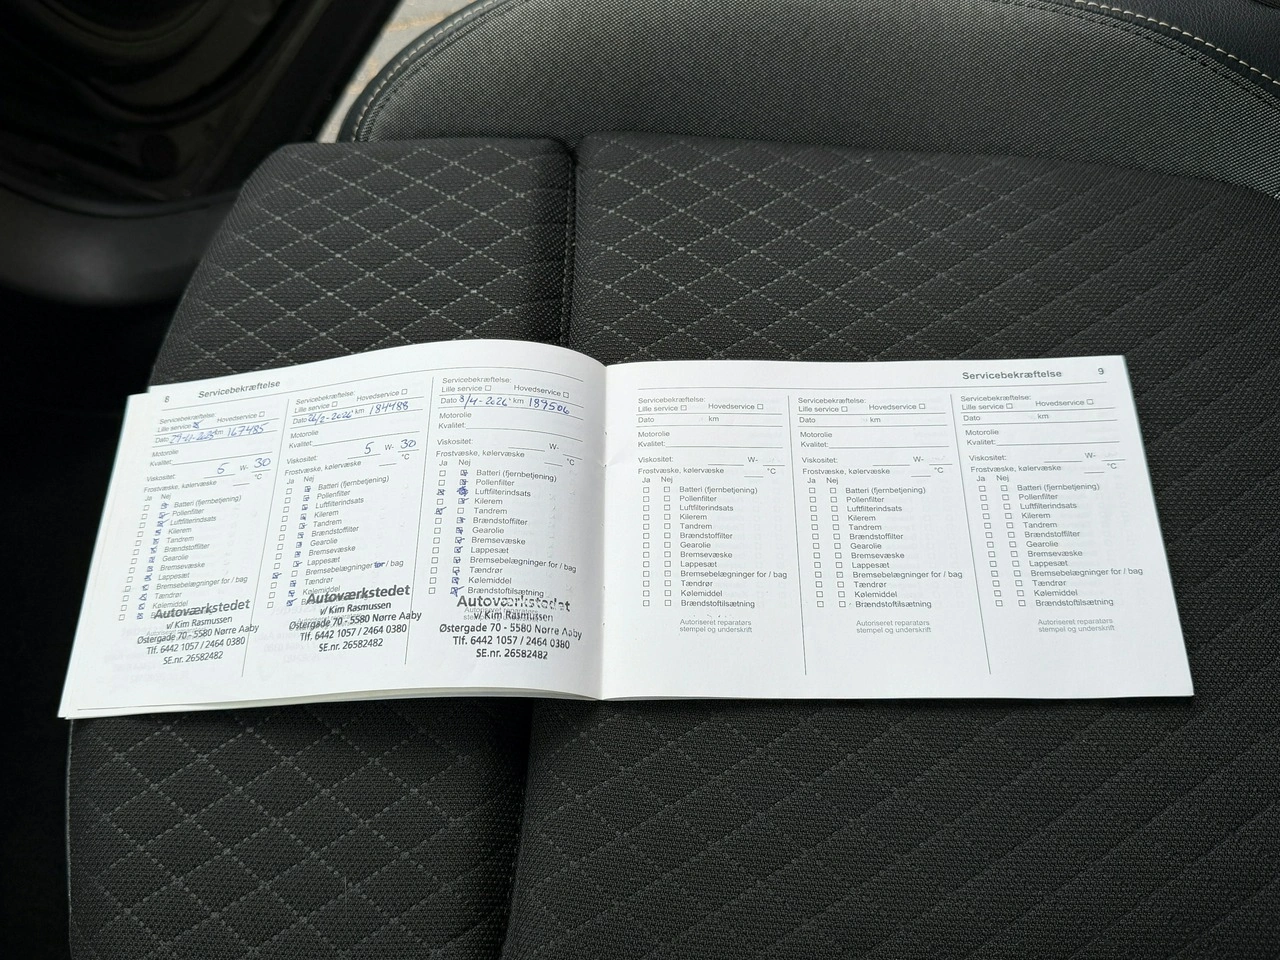 8 Servicebekræftelse
Servicebekræftelse:
Lille service Hovedservice
Dato km 167485
Motorolie
Kvalitet:
Viskositet: 5 W- 30
Frostvæske, kølervæske °C
Ja Nej
Batteri (fjernbetjening)
Pollenfilter
Luftfilterindsats
Kilerem
Tandrem
Brændstoffilter
Gearolie
Bremsevæske
Lappesæt
Bremsebelægninger for / bag
Tændrør
Kølemiddel
Autoværkstedet
v/ Kim Rasmussen
Østergade 70 - 5580 Nørre Aaby
Tlf. 6442 1057 / 2464 0380
SE.nr. 26582482
Servicebekræftelse:
Lille service Hovedservice
Dato 26/2-2026 km 184488
Motorolie
Kvalitet:
Viskositet: 5 W- 30
Frostvæske, kølervæske °C
Ja Nej
Batteri (fjernbetjening)
Pollenfilter
Luftfilterindsats
Kilerem
Tandrem
Brændstoffilter
Gearolie
Bremsevæske
Lappesæt
Bremsebelægninger for / bag
Tændrør
Kølemiddel
Autoværkstedet
v/ Kim Rasmussen
Østergade 70 - 5580 Nørre Aaby
Tlf. 6442 1057 / 2464 0380
SE.nr. 26582482
Servicebekræftelse:
Lille service Hovedservice
Dato 8/4-2026 km 189506
Motorolie
Kvalitet:
Viskositet: W-
Frostvæske, kølervæske °C
Ja Nej
Batteri (fjernbetjening)
Pollenfilter
Luftfilterindsats
Kilerem
Tandrem
Brændstoffilter
Gearolie
Bremsevæske
Lappesæt
Bremsebelægninger for / bag
Tændrør
Kølemiddel
Brændstoftilsætning
Autoværkstedet
v/ Kim Rasmussen
Østergade 70 - 5580 Nørre Aaby
Tlf. 6442 1057 / 2464 0380
SE.nr. 26582482
Servicebekræftelse 9
Servicebekræftelse:
Lille service Hovedservice
Dato km
Motorolie
Kvalitet:
Viskositet: W-
Frostvæske, kølervæske °C
Ja Nej
Batteri (fjernbetjening)
Pollenfilter
Luftfilterindsats
Kilerem
Tandrem
Brændstoffilter
Gearolie
Bremsevæske
Lappesæt
Bremsebelægninger for / bag
Tændrør
Kølemiddel
Brændstoftilsætning
Autoriseret reparatørs
stempel og underskrift
Servicebekræftelse:
Lille service Hovedservice
Dato km
Motorolie
Kvalitet:
Viskositet: W-
Frostvæske, kølervæske °C
Ja Nej
Batteri (fjernbetjening)
Pollenfilter
Luftfilterindsats
Kilerem
Tandrem
Brændstoffilter
Gearolie
Bremsevæske
Lappesæt
Bremsebelægninger for / bag
Tændrør
Kølemiddel
Brændstoftilsætning
Autoriseret reparatørs
stempel og underskrift
Servicebekræftelse:
Lille service Hovedservice
Dato km
Motorolie
Kvalitet:
Viskositet: W-
Frostvæske, kølervæske °C
Ja Nej
Batteri (fjernbetjening)
Pollenfilter
Luftfilterindsats
Kilerem
Tandrem
Brændstoffilter
Gearolie
Bremsevæske
Lappesæt
Bremsebelægninger for / bag
Tændrør
Kølemiddel
Brændstoftilsætning
Autoriseret reparatørs
stempel og underskrift